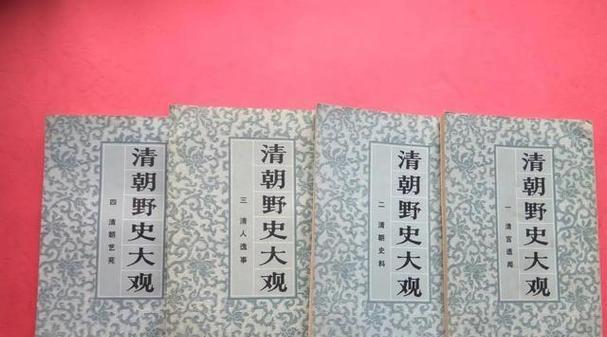 清朝野史大观
四 清朝艺苑
清朝野史大观
三 清人逸事
清朝野史大观
二 清朝史料
清朝野史大观
一 清宫遗闻